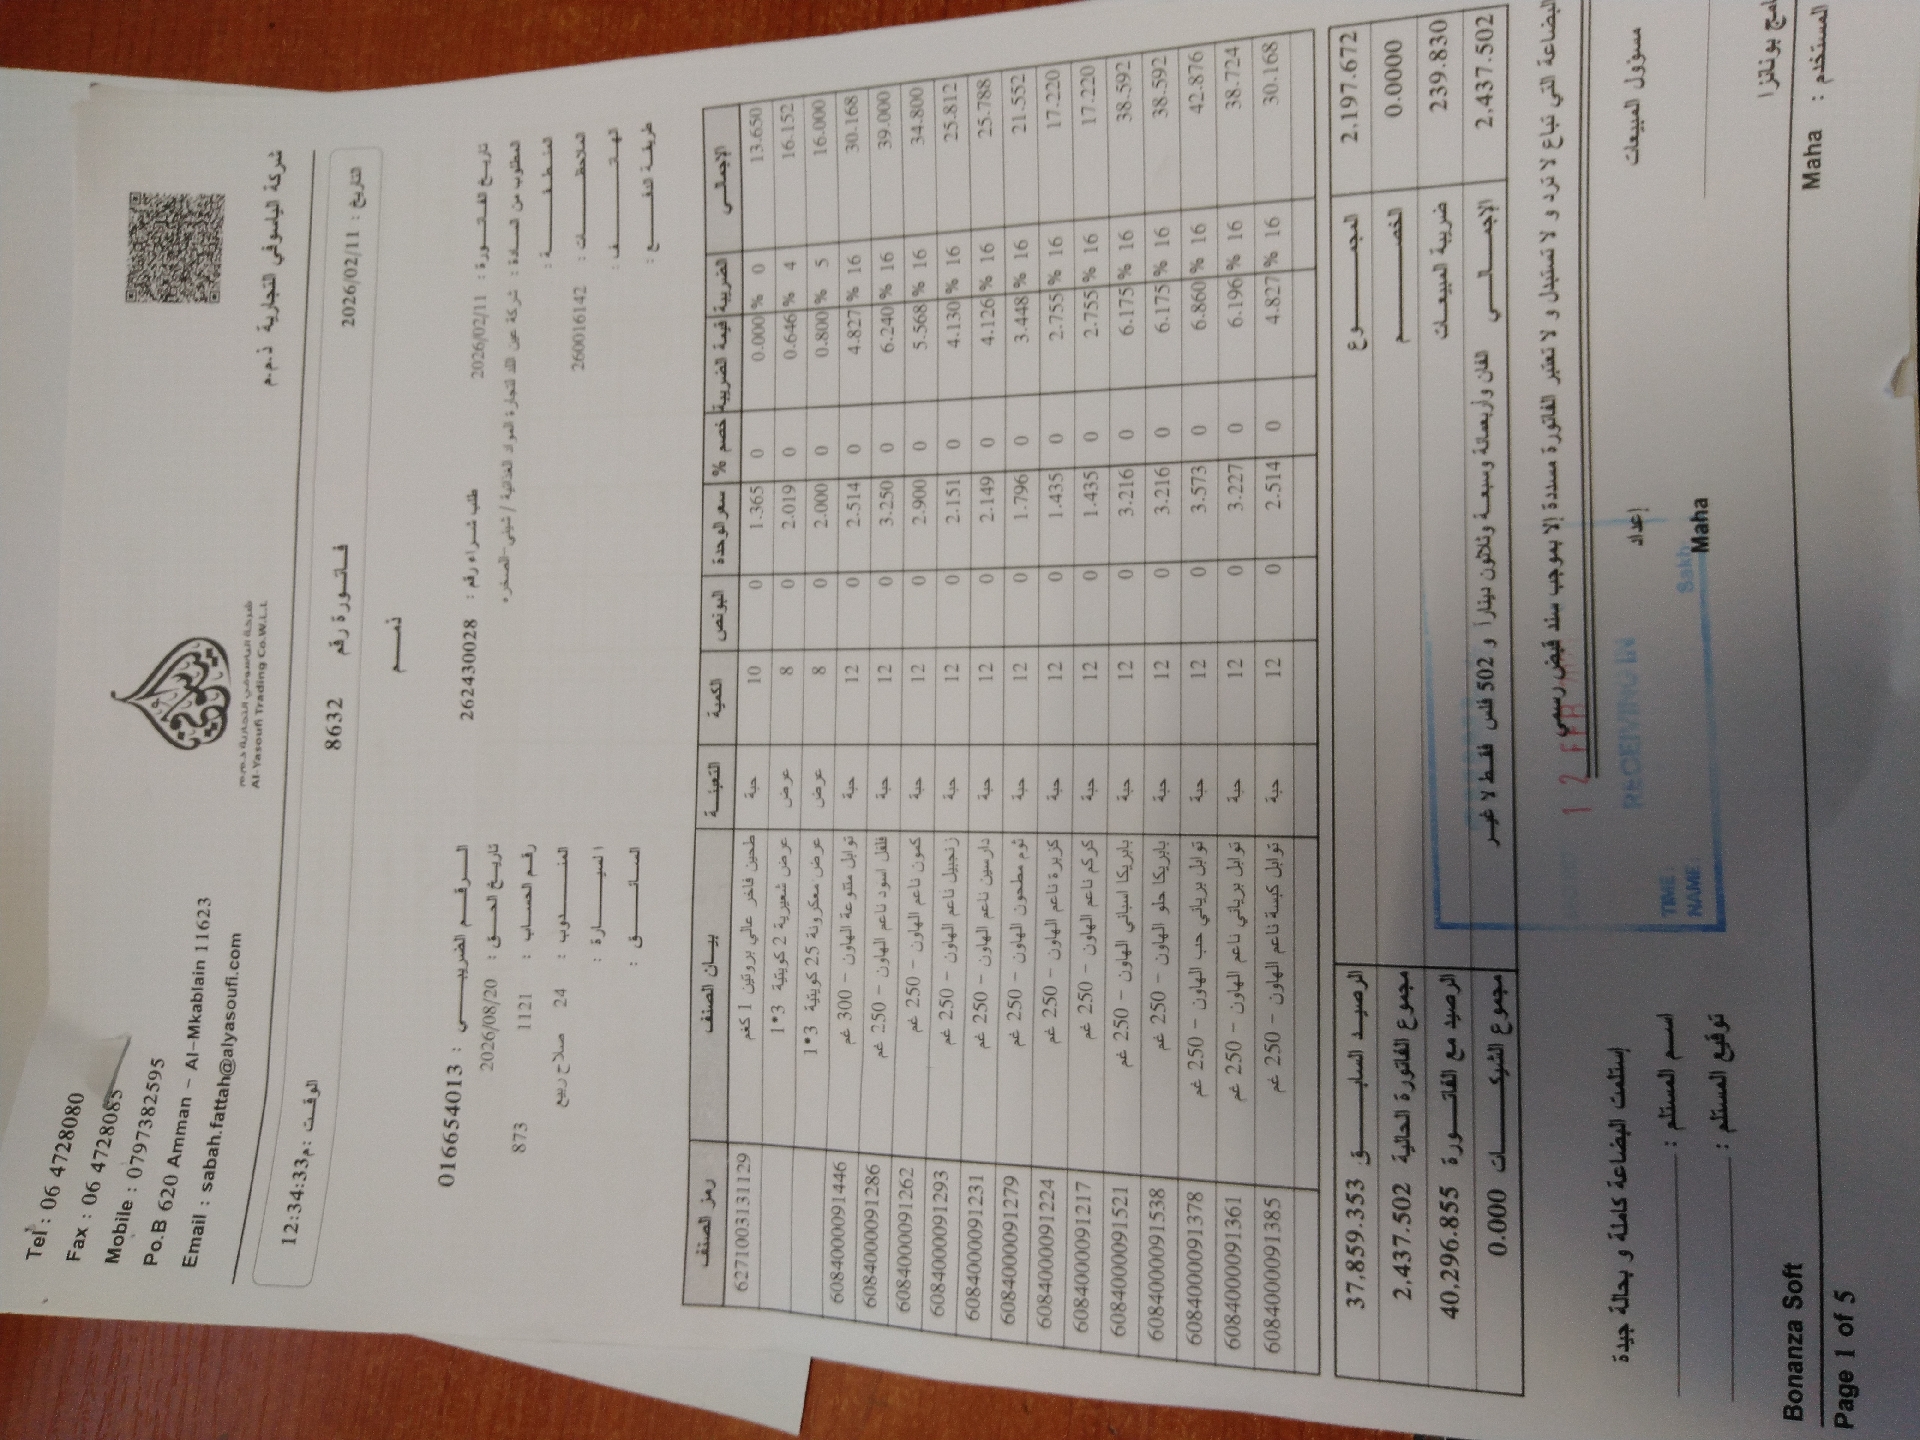 Tel : 06 4728080
Fax : 06 4728085
Mobile : 0797382595
Po.B 620 Amman - Al-Mkablain 11623
Email : sabah.fattah@alyasoufi.com
شركة الياسوفي التجارية ذ.م.م
Al-Yasoufi Trading Co.W.L.L
شركة الياسوفي التجارية ذ.م.م
التاريخ : 2026/02/11
فاتورة رقم 8632
الوقت : م12:34:33
ذمم
الرقم الضريبي : 016654013
تاريخ الفاتورة : 2026/02/11
طلب شراء رقم : 262430028
تاريخ الحق : 2026/08/20
المطلوب من السادة : شركة عين اللد لتجارة المواد الغذائية /
رقم الحساب : 1121 873
المنطقة :
المندوب : 24 صلاح ربيع
الملاحظات : 260016142
السيارة :
الهاتف :
السائق :
طريقة الدفع :
رمز الصنف بيان الصنف التعبئة الكمية البونص سعر الوحدة خصم % قيمة الضريبة الضريبة الإجمالي
6271003131129 طحين فاخر عالي بروتين 1 كغم حبة 10 0 1.365 0 0.000 % 0 13.650
عرض شعيرية 2 كويتية 3*1 عرض 8 0 2.019 0 0.646 % 4 16.152
عرض معكرونة 25 كويتية 3*1 عرض 8 0 2.000 0 0.800 % 5 16.000
6084000091446 توابل متنوعة الهاون - 300 غم حبة 12 0 2.514 0 4.827 % 16 30.168
6084000091286 فلفل اسود ناعم الهاون - 250 غم حبة 12 0 3.250 0 6.240 % 16 39.000
6084000091262 كمون ناعم الهاون - 250 غم حبة 12 0 2.900 0 5.568 % 16 34.800
6084000091293 زنجبيل ناعم الهاون - 250 غم حبة 12 0 2.151 0 4.130 % 16 25.812
6084000091231 دارسين ناعم الهاون - 250 غم حبة 12 0 2.149 0 4.126 % 16 25.788
6084000091279 ثوم مطحون الهاون - 250 غم حبة 12 0 1.796 0 3.448 % 16 21.552
6084000091224 كزبرة ناعم الهاون - 250 غم حبة 12 0 1.435 0 2.755 % 16 17.220
6084000091217 كركم ناعم الهاون - 250 غم حبة 12 0 1.435 0 2.755 % 16 17.220
6084000091521 بابريكا اسباني الهاون - 250 غم حبة 12 0 3.216 0 6.175 % 16 38.592
6084000091538 بابريكا حلو الهاون - 250 غم حبة 12 0 3.216 0 6.175 % 16 38.592
6084000091378 توابل برياني حب الهاون - 250 غم حبة 12 0 3.573 0 6.860 % 16 42.876
6084000091361 توابل برياني ناعم الهاون - 250 غم حبة 12 0 3.227 0 6.196 % 16 38.724
6084000091385 توابل كبسة ناعم الهاون - 250 غم حبة 12 0 2.514 0 4.827 % 16 30.168
الرصيد السابق 37,859.353
المجموع 2,197.672
مجموع الفاتورة الحالية 2,437.502
الخصم 0.0000
الرصيد مع الفاتورة 40,296.855
ضريبة المبيعات 239.830
مجموع الشيكات 0.000
الفان وأربعمائة وسبعة وثلاثون ديناراً و 502 فلس فقط لا غير
الإجمالي 2,437.502
البضاعة التي تباع لا ترد و لا تستبدل و لا تعتبر الفاتورة مسددة إلا بموجب سند قبض رسمي
12 FEB
RECEIVING IN
TIME :
NAME
إستلمت البضاعة كاملة و بحالة جيدة
إعداد
مسؤول المبيعات
اسم المستلم :
Maha
توقيع المستلم :
Bonanza Soft
بونانزا
Page 1 of 5
المستخدم : Maha